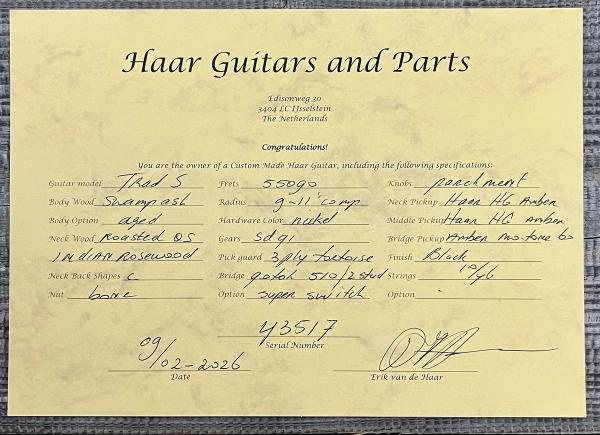 Haar Guitars and Parts
Edisonweg 30
3404 LC IJsselstein
The Netherlands
Congratulations!
You are the owner of a Custom Made Haar Guitar, including the following specifications:
Guitar model Trad S Frets 55090 Knobs parchment
Body Wood Swamp ash Radius 9-11" comp Neck Pickup Haar HG Amber
Body Option aged Hardware Color nickel Middle Pickup Haar HG Amber
Neck Wood Roasted QS Gears Sd91 Bridge Pickup Amber
INDIAN Rosewood Pick guard 3 ply tortoise Finish Black
Neck Back Shapes C Bridge gotoh 510/2 stud Strings 10/46
Nut bone Option super switch Option
43517
Serial Number
09/02-2026
Date
Erik van de Haar